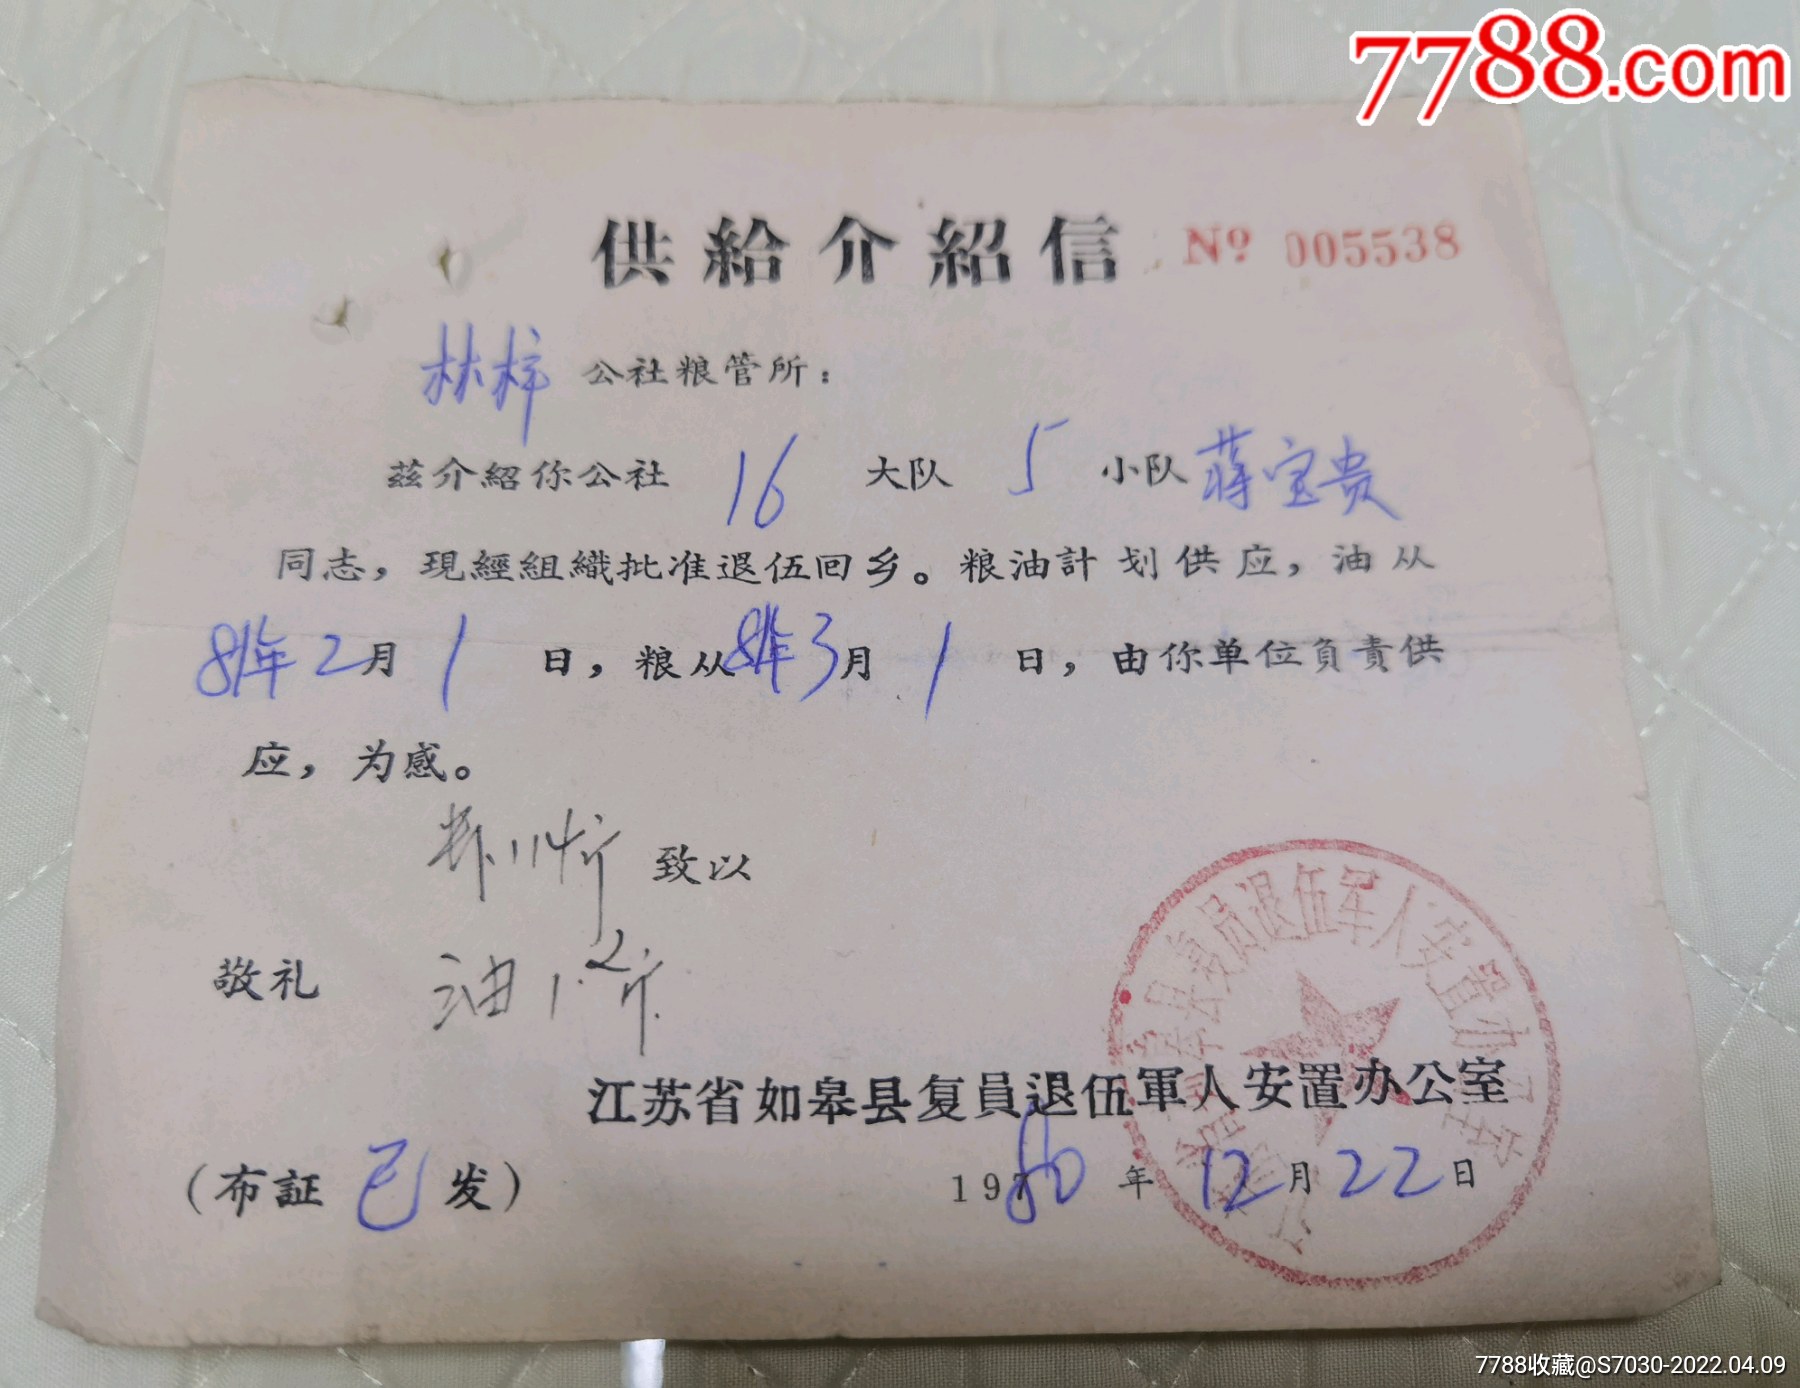 7788.com
供給介紹信 Nº 005538
林梓公社粮管所：
茲介紹你公社 16 大队 5 小队 蒋宝贵
同志，現經組織批准退伍回乡。粮油計划供应，油从
81年2月1日，粮从81年3月1日，由你单位負責供
应，为感。
粮114斤 致以
敬礼 油1.2斤
江苏省如皋县复員退伍軍人安置办公室
(布証 已 发) 1980年12月22日
江苏省如皋县复员退伍军人安置办公室
7788收藏@S7030-2022.04.09